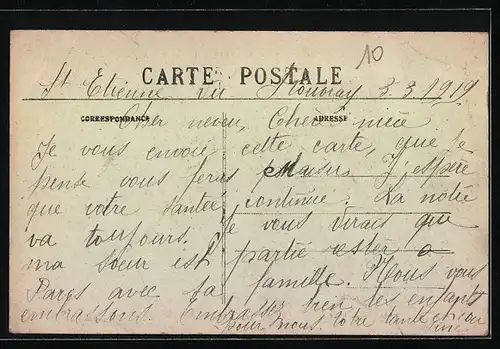 10
CARTE POSTALE
St Etienne du Rouvray 3.3.1919
CORRESPONDANCE ADRESSE
Cher neveu, Chère nièce
Je vous envoie cette carte, que je
pense vous feras plaisir. J'espère
que votre santée continue. La notre
va toujours. Je vous dirais que
ma sœur est partie rester a
Pares avec sa famille. Nous vous
embrassons. Embrassez bien les enfants
pour nous. Votre tante et